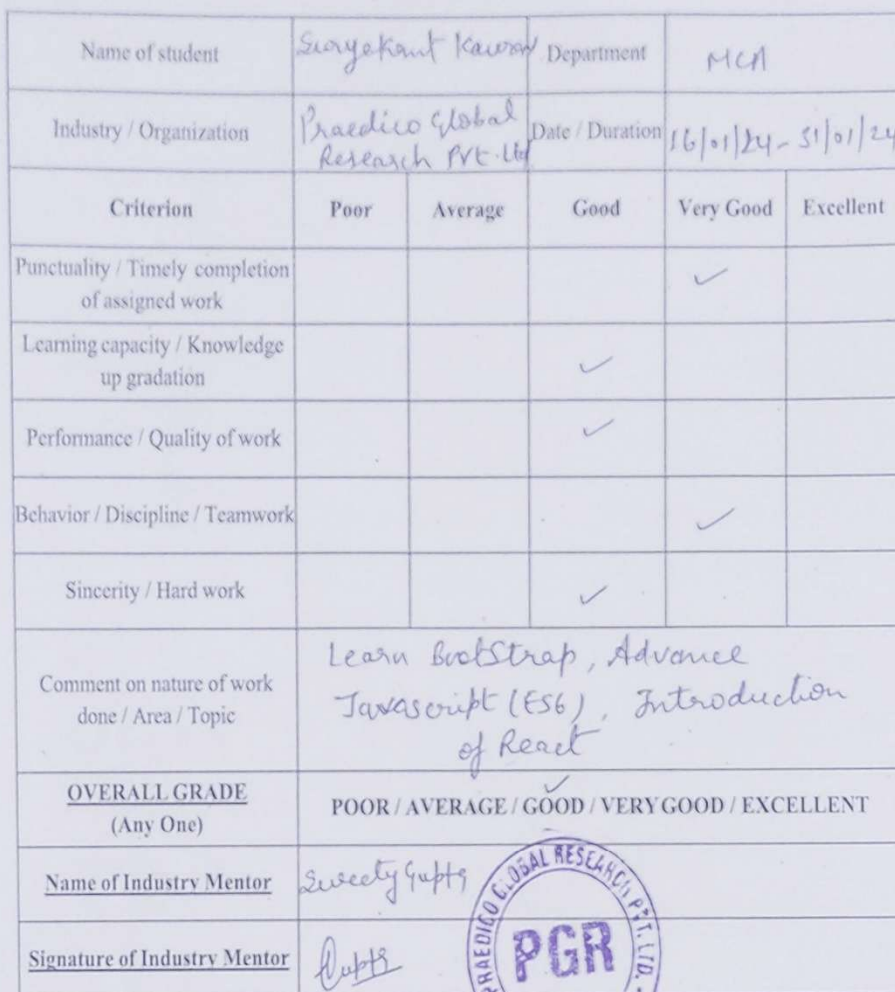 Name of student Suryakant Kawran Department MCA
Industry / Organization Praedico Global Research Pvt. Ltd Date / Duration 16/01/24 - 31/01/24
Criterion Poor Average Good Very Good Excellent
Punctuality / Timely completion
of assigned work ✓
Learning capacity / Knowledge
up gradation ✓
Performance / Quality of work ✓
Behavior / Discipline / Teamwork ✓
Sincerity / Hard work ✓
Comment on nature of work
done / Area / Topic
Learn BootStrap, Advance
Javascript (ES6), Introduction
of React
OVERALL GRADE
(Any One)
POOR / AVERAGE / GOOD / VERY GOOD / EXCELLENT
Name of Industry Mentor Sweety Gupta
Signature of Industry Mentor Gupta
PRAEDICO GLOBAL RESEARCH PVT. LTD.
PGR